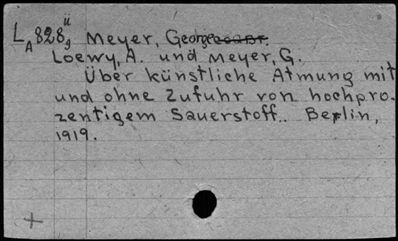 L A 828 g" Meyer, George
Loewy, A. und Meyer, G.
Über künstliche Atmung mit
und ohne Zufuhr von hochpro.
zentigem Sauerstoff.. Berlin,
1919.
+